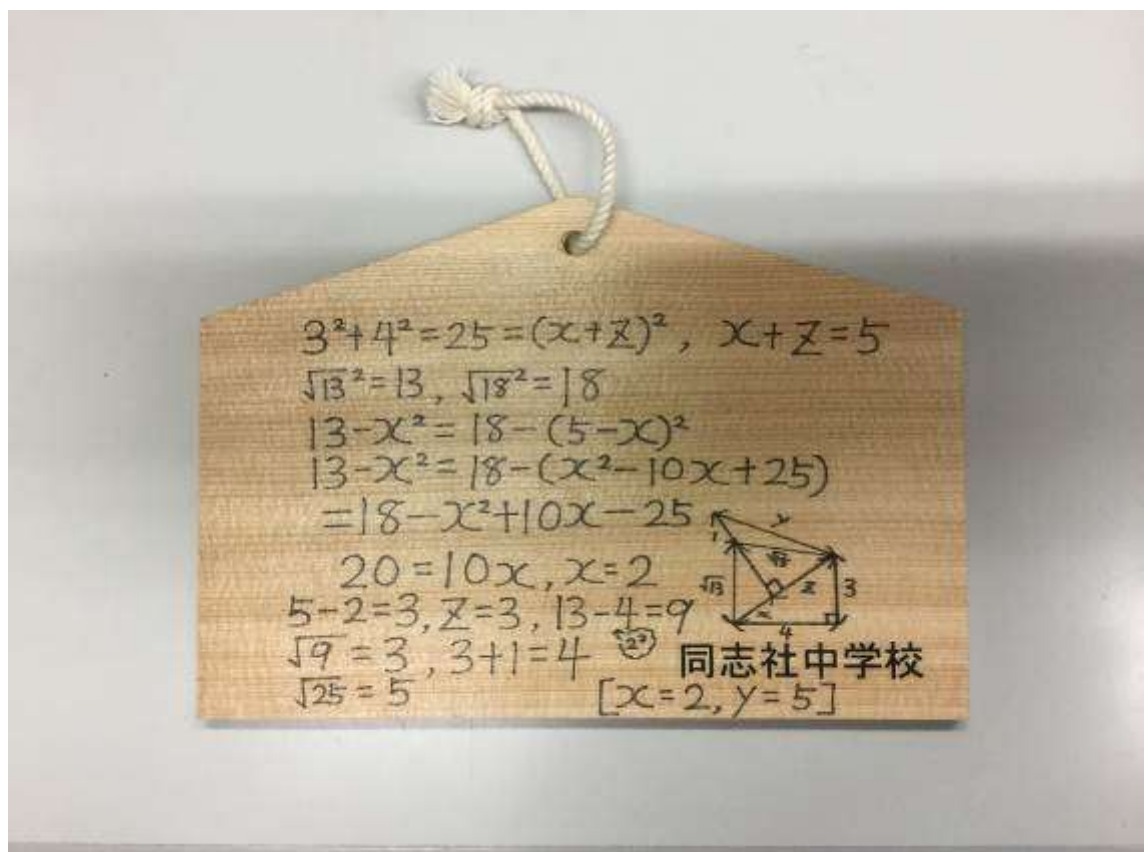 3²+4²=25=(x+z)², x+z=5
√13²=13, √18²=18
13-x²=18-(5-x)²
13-x²=18-(x²-10x+25)
=18-x²+10x-25
20=10x, x=2
5-2=3, z=3, 13-4=9
2²
√9=3, 3+1=4
√25=5
[x=2, y=5]
1
y
√18
√13
z
3
x
4
同志社中学校